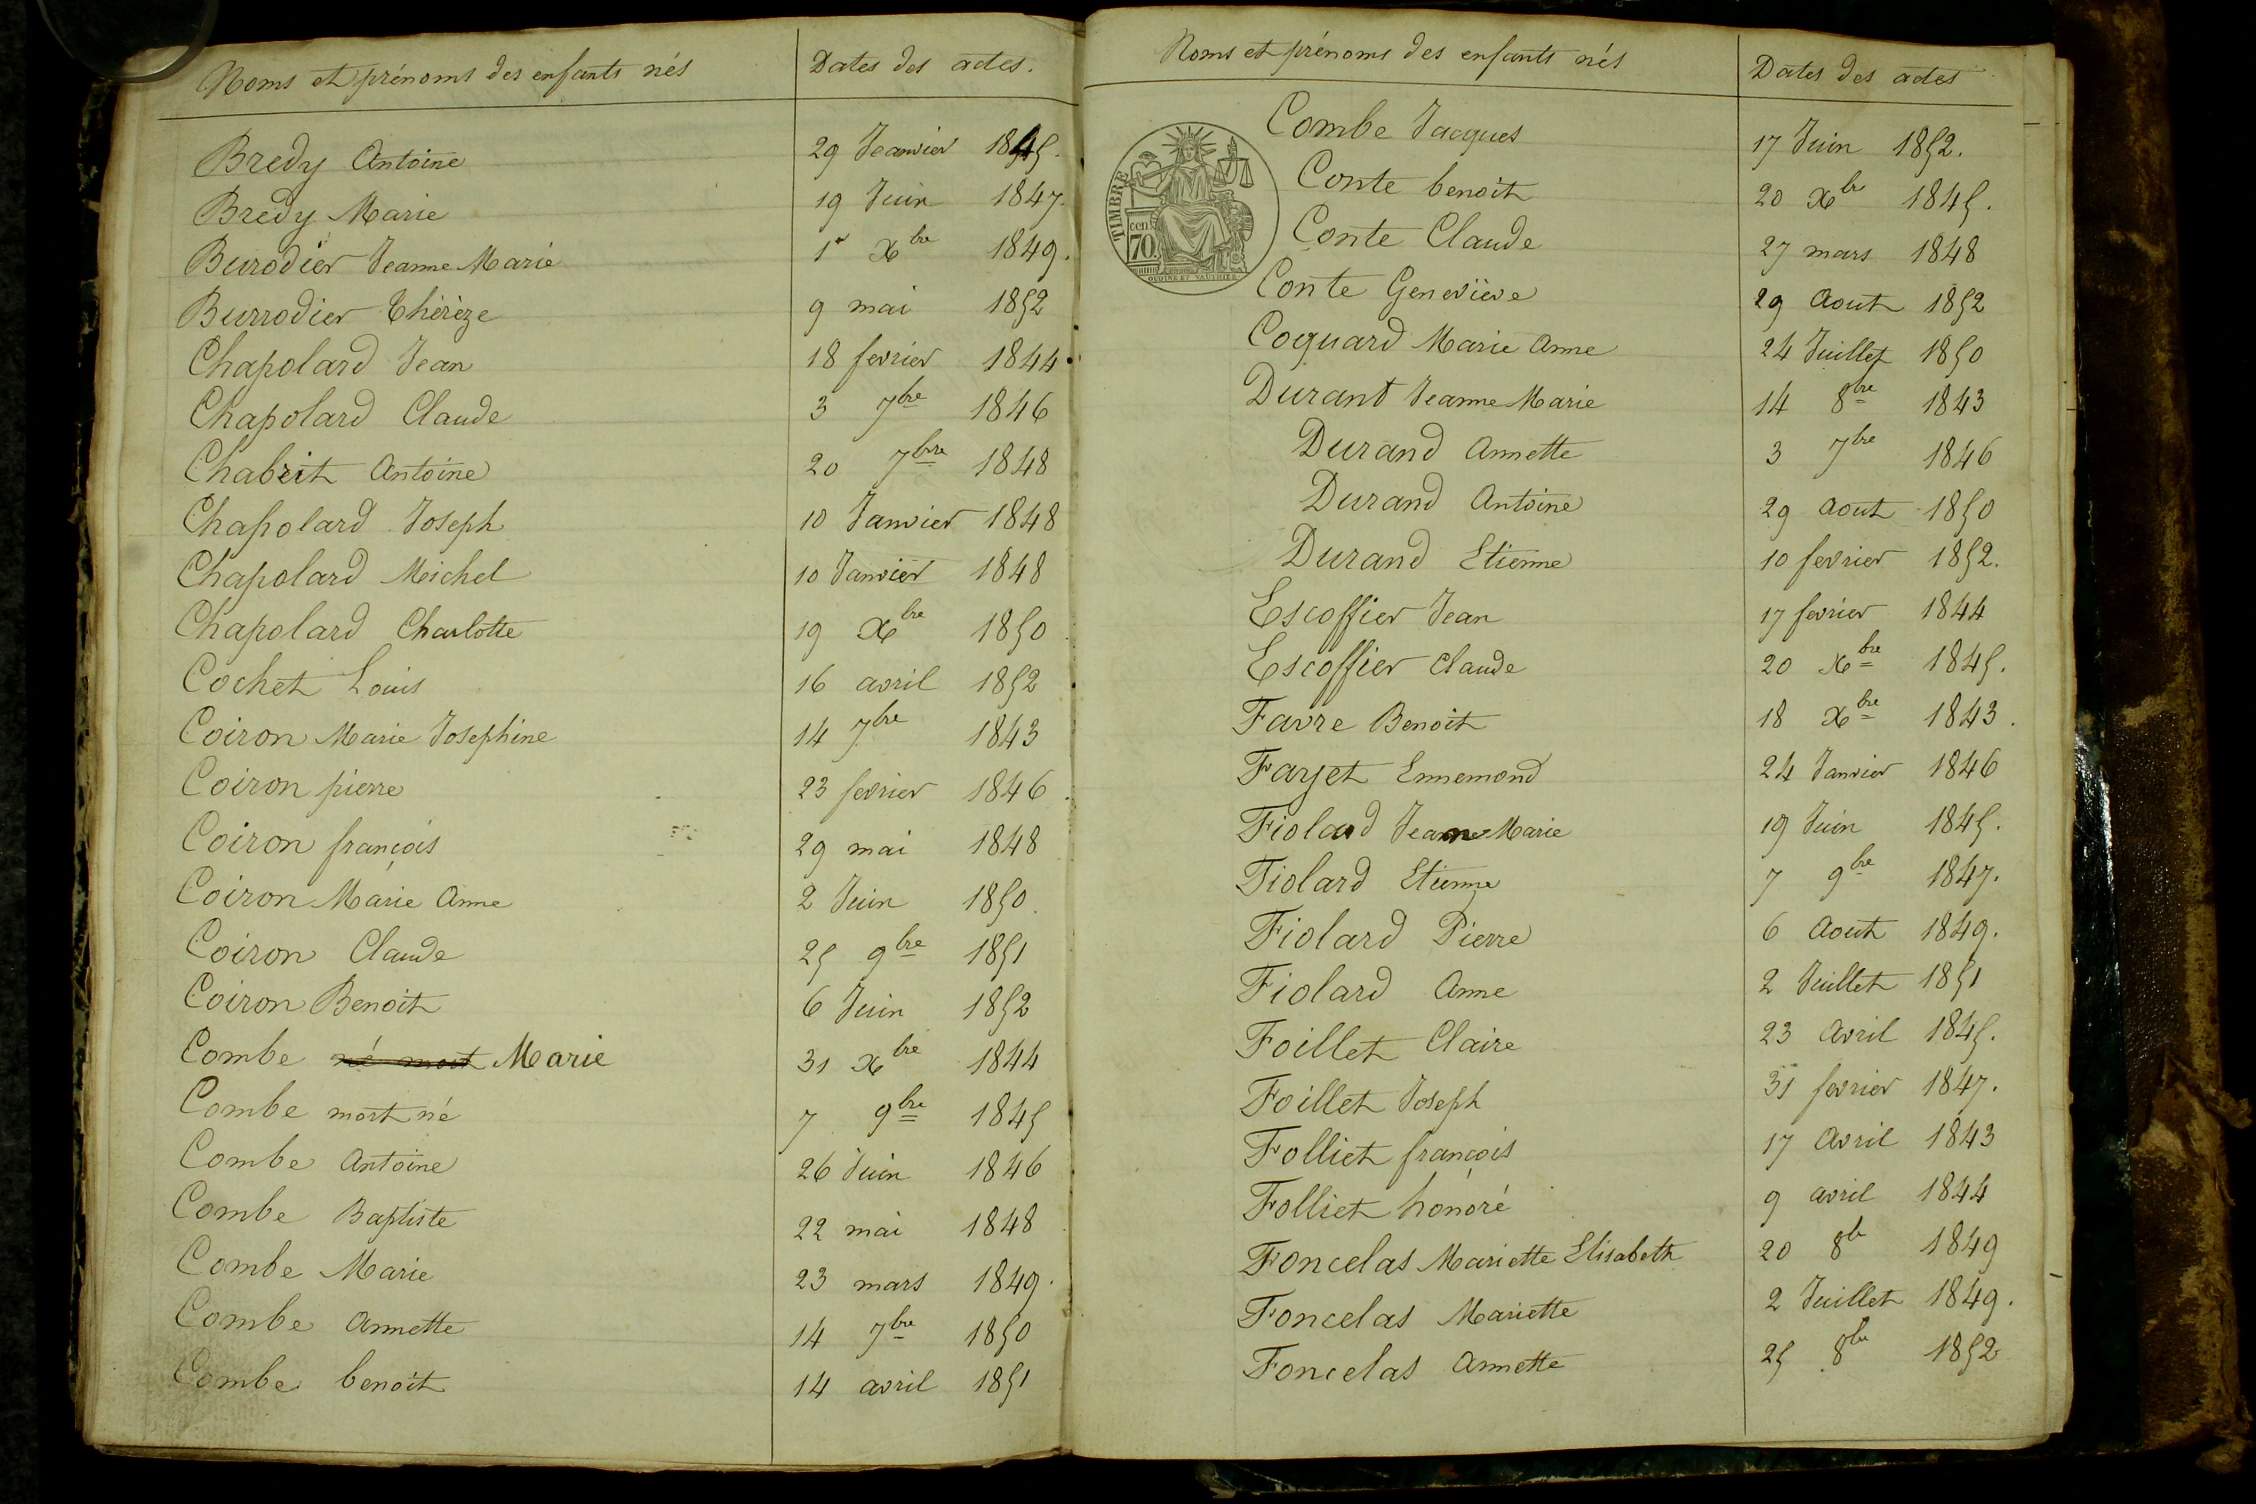 Noms et prénoms des enfants nés Dates des actes.
Bredy Antoine 29 Janvier 1845.
Bredy Marie 19 Juin 1847.
Burodier Jeanne Marie 1r Xbre 1849.
Burrodier Thérèze 9 mai 1852
Chapolard Jean 18 fevrier 1844.
Chapolard Claude 3 7bre 1846
Chabrit Antoine 20 7bre 1848
Chapolard Joseph 10 Janvier 1848
Chapolard Michel 10 Janvier 1848
Chapolard Charlotte 19 Xbre 1850
Cochet Louis 16 avril 1852
Coiron Marie Josephine 14 7bre 1843
Coiron pierre 23 fevrier 1846.
Coiron françois 29 mai 1848
Coiron Marie Anne 2 Juin 1850.
Coiron Claude 25 9bre 1851
Coiron Benoit 6 Juin 1852
Combe né mort Marie 31 Xbre 1844
Combe mort né 7 9bre 1845
Combe Antoine 26 Juin 1846
Combe Baptiste 22 mai 1848
Combe Marie 23 mars 1849.
Combe Annette 14 7bre 1850
Combe benoit 14 avril 1851
Noms et prénoms des enfants nés Dates des actes
TIMBRE
70 cen.
OUDINÉ ET VAUTHIER
Combe Jacques 17 Juin 1852.
Conte benoit 20 Xbr 1845.
Conte Claude 27 mars 1848
Conte Geneviève 29 Aout 1852
Coquard Marie Anne 24 Juillet 1850
Durant Jeanne Marie 14 8bre 1843
Durand Annette 3 7bre 1846
Durand Antoine 29 Aout 1850
Durand Etienne 10 fevrier 1852.
Escoffier Jean 17 fevrier 1844
Escoffier Claude 20 Xbre 1845.
Favre Benoit 18 Xbre 1843.
Fayet Ennemond 24 Janvier 1846
Fiolard Jeanne Marie 19 Juin 1845.
Fiolard Etienne 7 9bre 1847.
Fiolard Pierre 6 Aout 1849.
Fiolard Anne 2 Juillet 1851
Foillet Claire 23 Avril 1845.
Foillet Joseph 31 fevrier 1847.
Folliet françois 17 Avril 1843
Folliet honoré 9 avril 1844
Foncelas Mariette Elisabeth 20 8br 1849
Foncelas Mariette 2 Juillet 1849.
Foncelas Annette 25 8bre 1852